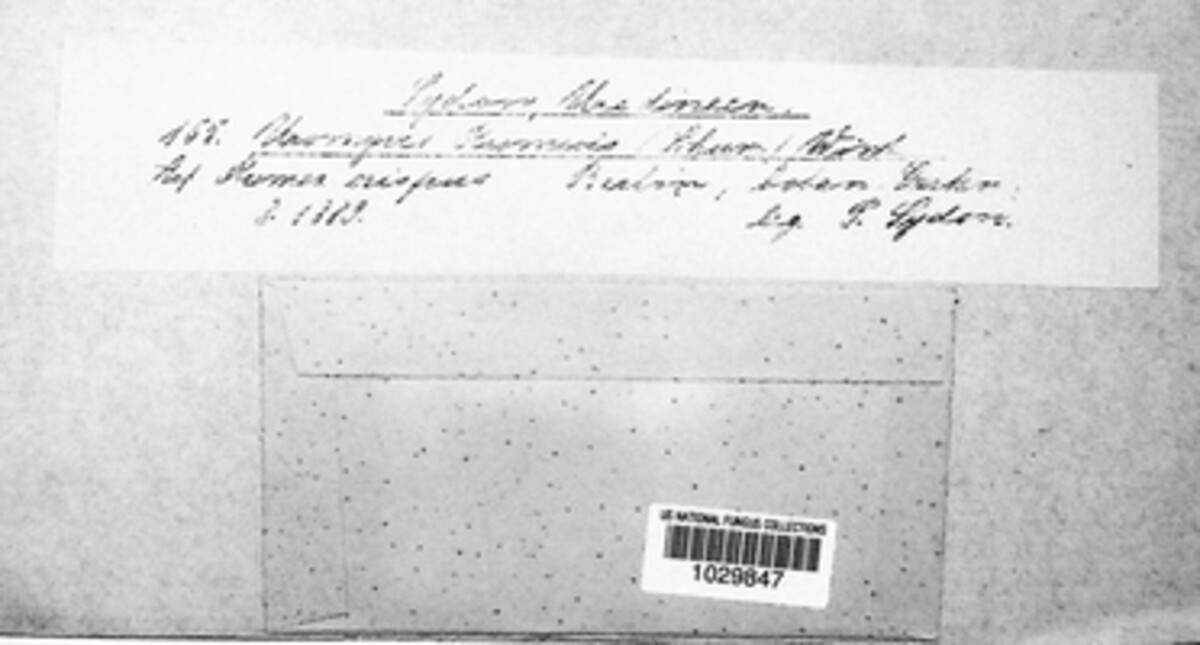 Sydow, Uredineen.
155. Uromyces Rumicis (Schum.) Wint.
Auf Rumex crispus Berlin, botan. Garten.
8. 1889. leg. P. Sydow.
US NATIONAL FUNGUS COLLECTIONS
1029847